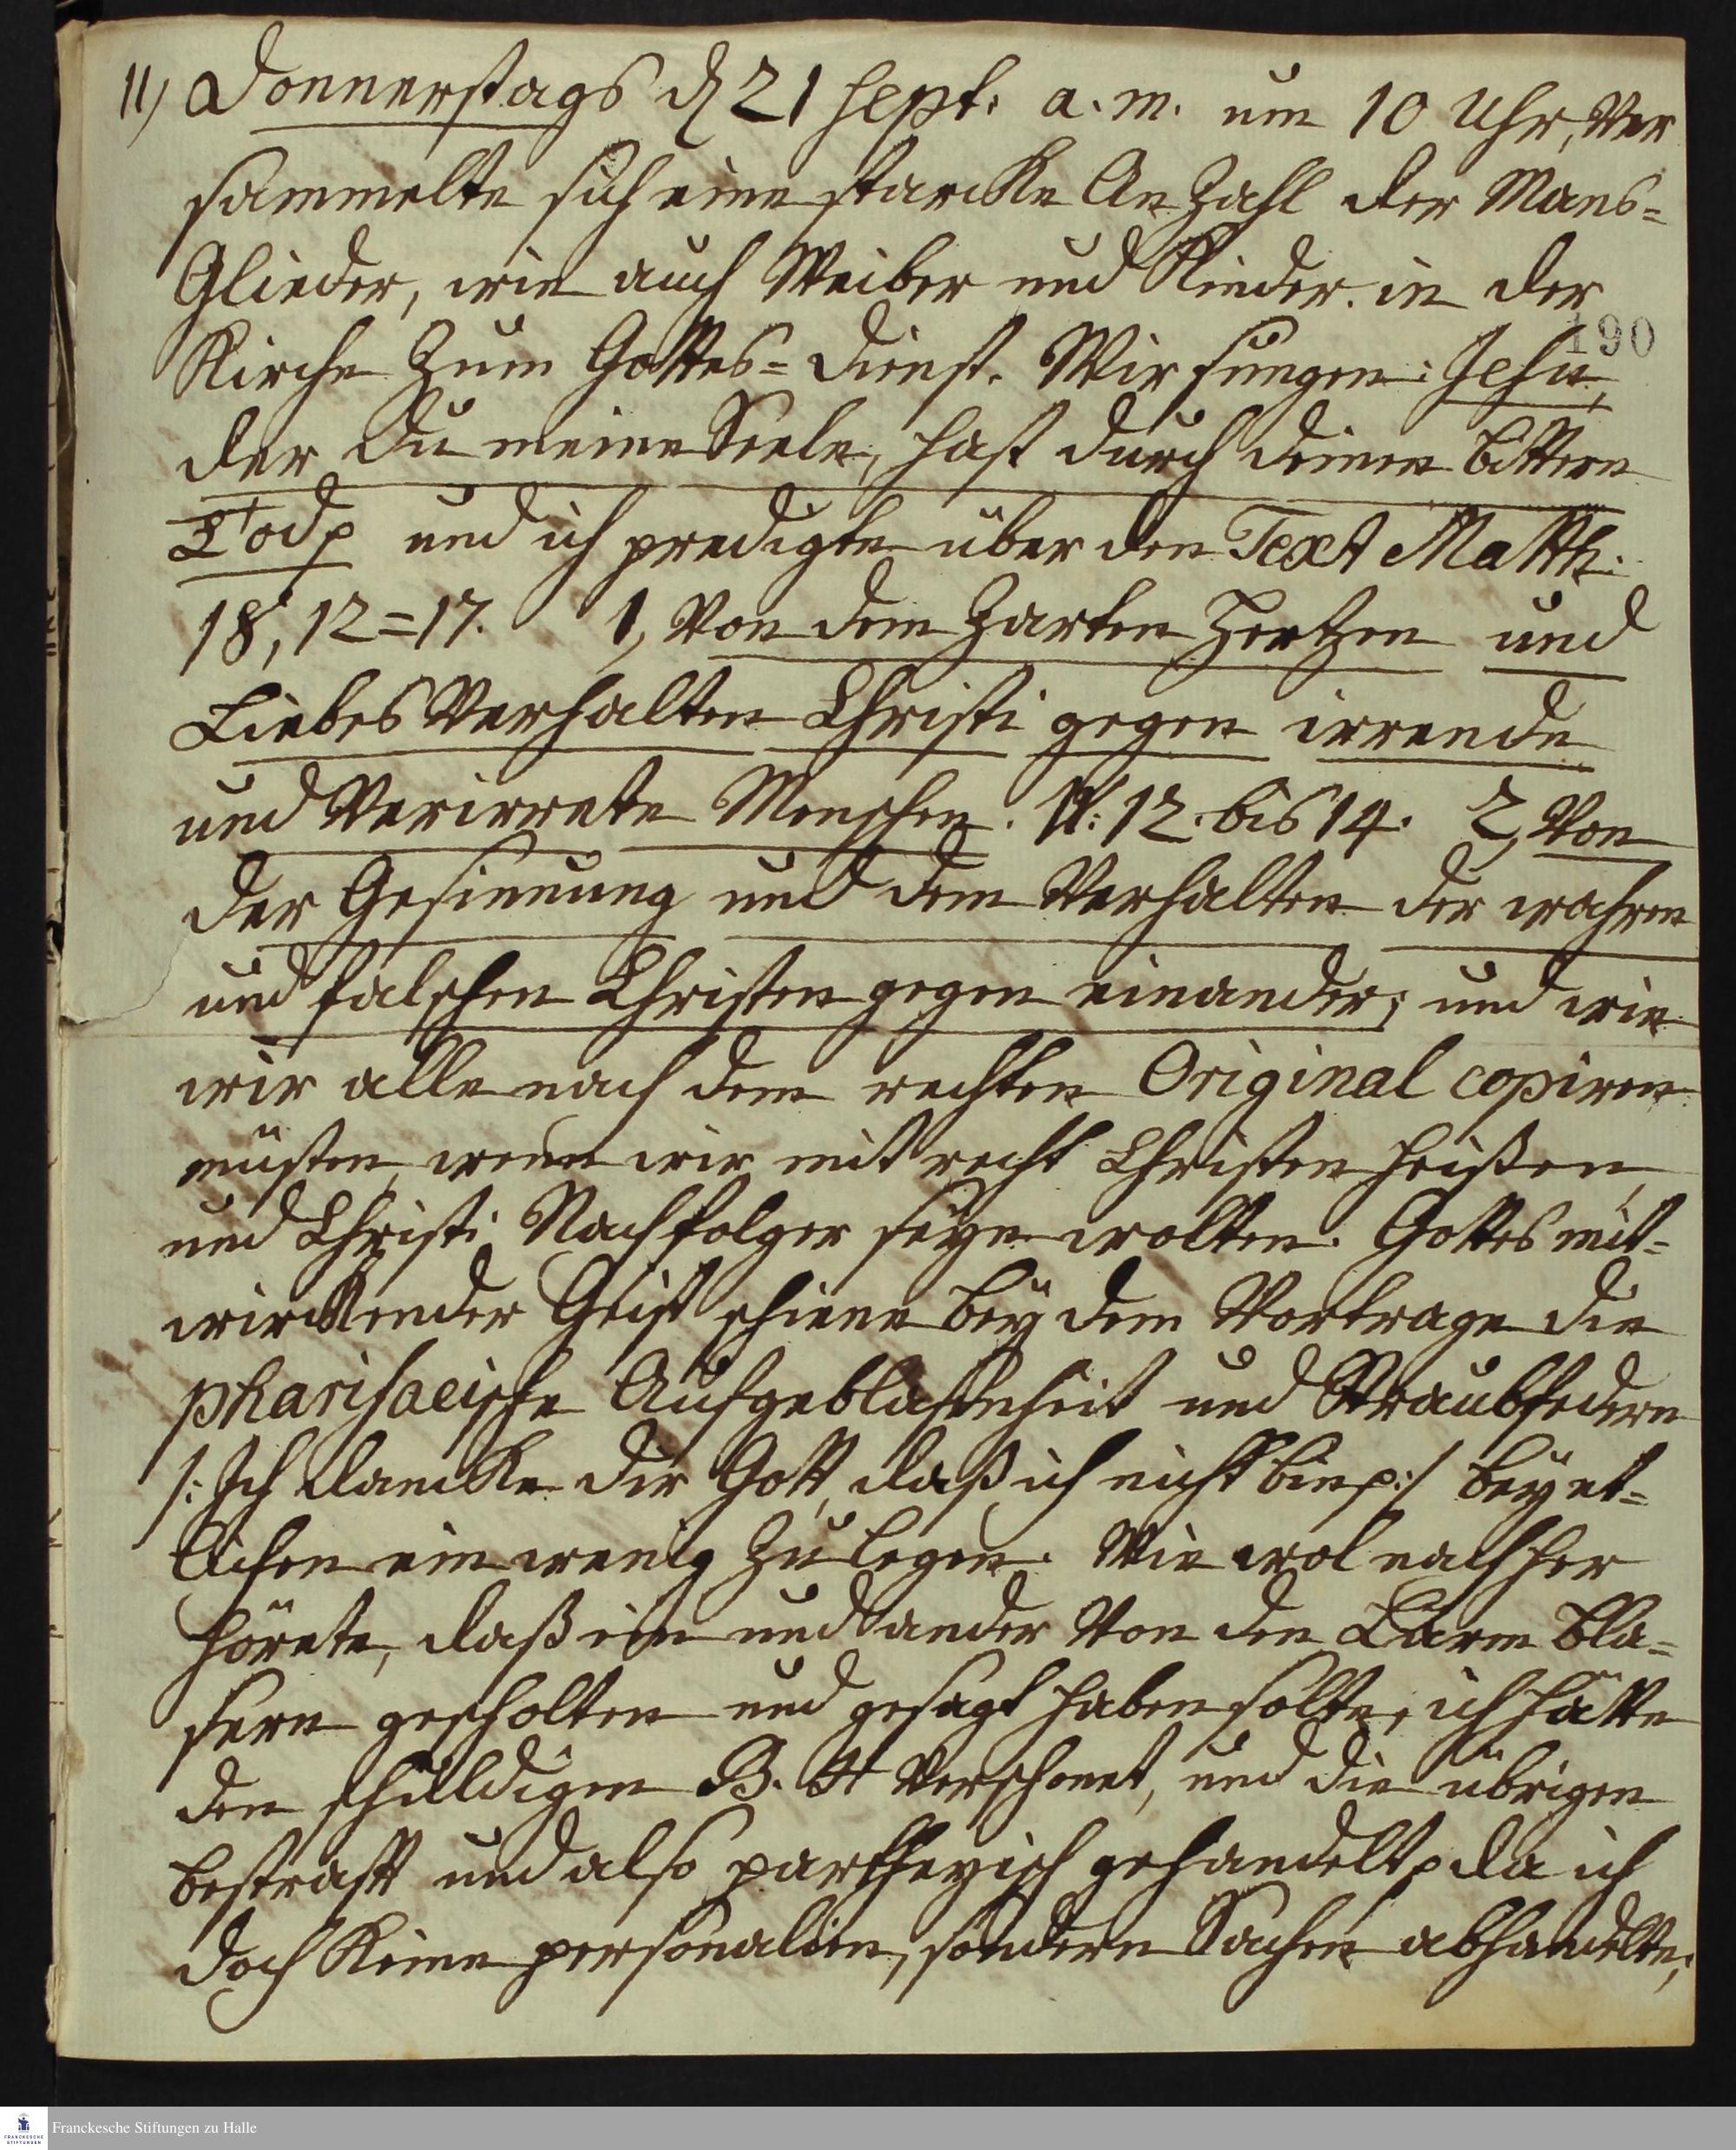 11) Donnerstags d 21 Sept. a. m. um 10 Uhr, ver
sammelte sich eine starcke AnZahl der Mans=
Glieder, wie auch Weiber und Kinder in der
190
Kirche zum Gottes=dienst. Wir sungen: Jesu,
der du meine Seele, hast durch deinen bittern
Tod p und ich predigte über den Text Matth:
18, 12=17. 1, Von dem zarten Hertzen und
Liebes Verhalten Christi gegen irrende
und Verirrete Menschen. V: 12. bis 14. 2, Von
der Gesinnung und dem Verhalten der wahren
und falschen Christen gegen einander; und wie
wir alle nach dem rechten Original copiren
müsten, wenn wir mit recht Christen heißen,
und Christi Nachfolger seyn wolten. Gottes mit=
wirckender Geist schiene bey dem Vortrage die
pharisaeische Aufgeblasenheit und Straubfedern
/: Ich dancke dir Gott, daß ich nicht bin p :/ bey et=
lichen ein wenig zu legen. Wie wol nachher
hörete, daß ein und ander von den Lärm blä=
sern gescholten und gesagt haben solte, ich hätte
den schuldigen B. St verschonet, und die übrigen
bestrafft und also partheyisch gehandelt p da ich
doch keine personalien, sondern Sachen abhandelte;
Franckesche Stiftungen zu Halle
FRANCKESCHE
STIFTUNGEN